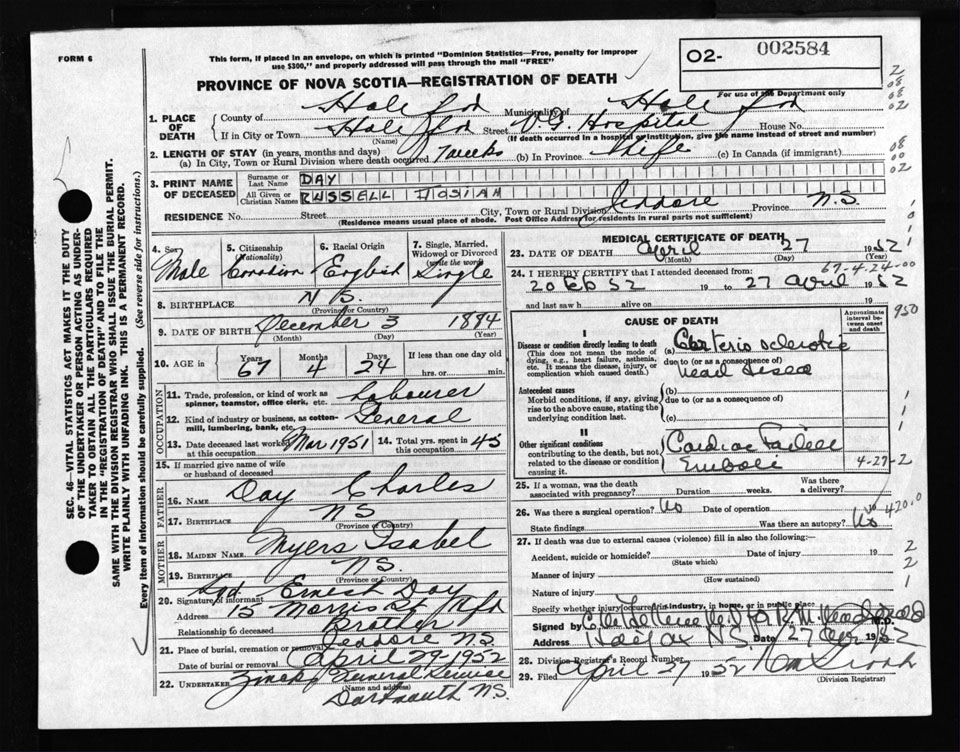 FORM 6
This form, if placed in an envelope, on which is printed "Dominion Statistics—Free, penalty for improper
use $300," and properly addressed will pass through the mail "FREE"
O2- 002584
PROVINCE OF NOVA SCOTIA—REGISTRATION OF DEATH
For use of the Department only
1. PLACE OF DEATH
County of Municipality of
If in City or Town Street V.G. Hospital House No.
(Name) (If death occurred in a hospital or institution, give the name instead of street and number)
2. LENGTH OF STAY (in years, months and days)
(a) In City, Town or Rural Division where death occurred 7 weeks (b) In Province Life (c) In Canada (if immigrant)
3. PRINT NAME OF DECEASED
Surname or Last Name DAY
All Given or Christian Names RUSSELL HOSIAH
RESIDENCE No. Street City, Town or Rural Division Jeddore Province N.S.
(Residence means usual place of abode. Post Office Address for residents in rural parts not sufficient)
4. Sex Male
5. Citizenship (Nationality) Canadian
6. Racial Origin English
7. Single, Married, Widowed or Divorced (write the word) Single
8. BIRTHPLACE
(Province or Country)
9. DATE OF BIRTH December 3 1884
(Month) (Day) (Year)
10. AGE in Years 67 Months 4 Days 24 If less than one day old hrs. or min.
OCCUPATION
11. Trade, profession, or kind of work as spinner, teamster, office clerk, etc. Labourer
12. Kind of industry or business, as cotton-mill, lumbering, bank, etc. General
13. Date deceased last worked at this occupation Mar 1951 14. Total yrs. spent in 45
15. If married give name of wife or husband of deceased
FATHER
16. NAME Day Charles
17. BIRTHPLACE N S
(Province or Country)
MOTHER
18. MAIDEN NAME Myers Isabel
19. BIRTHPLACE N.S.
(Province or Country)
20. Signature of informant Sgd Ernest Day
Address 15 Morris St Hfx
Relationship to deceased Brother
21. Place of burial, cremation or removal Jeddore N.S.
Date of burial or removal April 29 1952
22. UNDERTAKER Funeral Service
(Name and address) Dartmouth N.S.
MEDICAL CERTIFICATE OF DEATH
23. DATE OF DEATH April 27 1952
(Month) (Day)
67-4-24-00
24. I HEREBY CERTIFY that I attended deceased from:
52 19 to 27 April 1952
and last saw h alive on 19
950
CAUSE OF DEATH
Approximate interval between onset and death
I
Disease or condition directly leading to death (a) Arterio sclerotic
(This does not mean the mode of dying, e.g., heart failure, asthenia, etc. It means the disease, injury, or complication which caused death.)
due to (or as a consequence of)
heart disease
Antecedent causes
Morbid conditions, if any, giving rise to the above cause, stating the underlying condition last.
(b)
due to (or as a consequence of)
(c)
II
Other significant conditions contributing to the death, but not related to the disease or condition causing it.
Cardiac Failure
Emboli
4-27-2
25. If a woman, was the death associated with pregnancy? Duration weeks. Was there a delivery?
26. Was there a surgical operation? No Date of operation 19
420.0
State findings Was there an autopsy? No
27. If death was due to external causes (violence) fill in also the following:—
Accident, suicide or homicide? Date of injury 19
(State which)
Manner of injury
(How sustained)
Nature of injury
Specify whether injury occurred in industry, in home, or in public place
Signed by M.D.
Address Halifax N.S. Date 27 Apr 1952
28. Division Registrar's Record Number
29. Filed April 27 1952
(Division Registrar)
SEC. 46—VITAL STATISTICS ACT MAKES IT THE DUTY
OF THE UNDERTAKER OR PERSON ACTING AS UNDER-
TAKER TO OBTAIN ALL THE PARTICULARS REQUIRED
IN THE "REGISTRATION OF DEATH" AND TO FILE THE
SAME WITH THE DIVISION REGISTRAR WHO SHALL ISSUE THE BURIAL PERMIT.
WRITE PLAINLY WITH UNFADING INK. THIS IS A PERMANENT RECORD.
Every item of information should be carefully supplied. (See reverse side for instructions.)